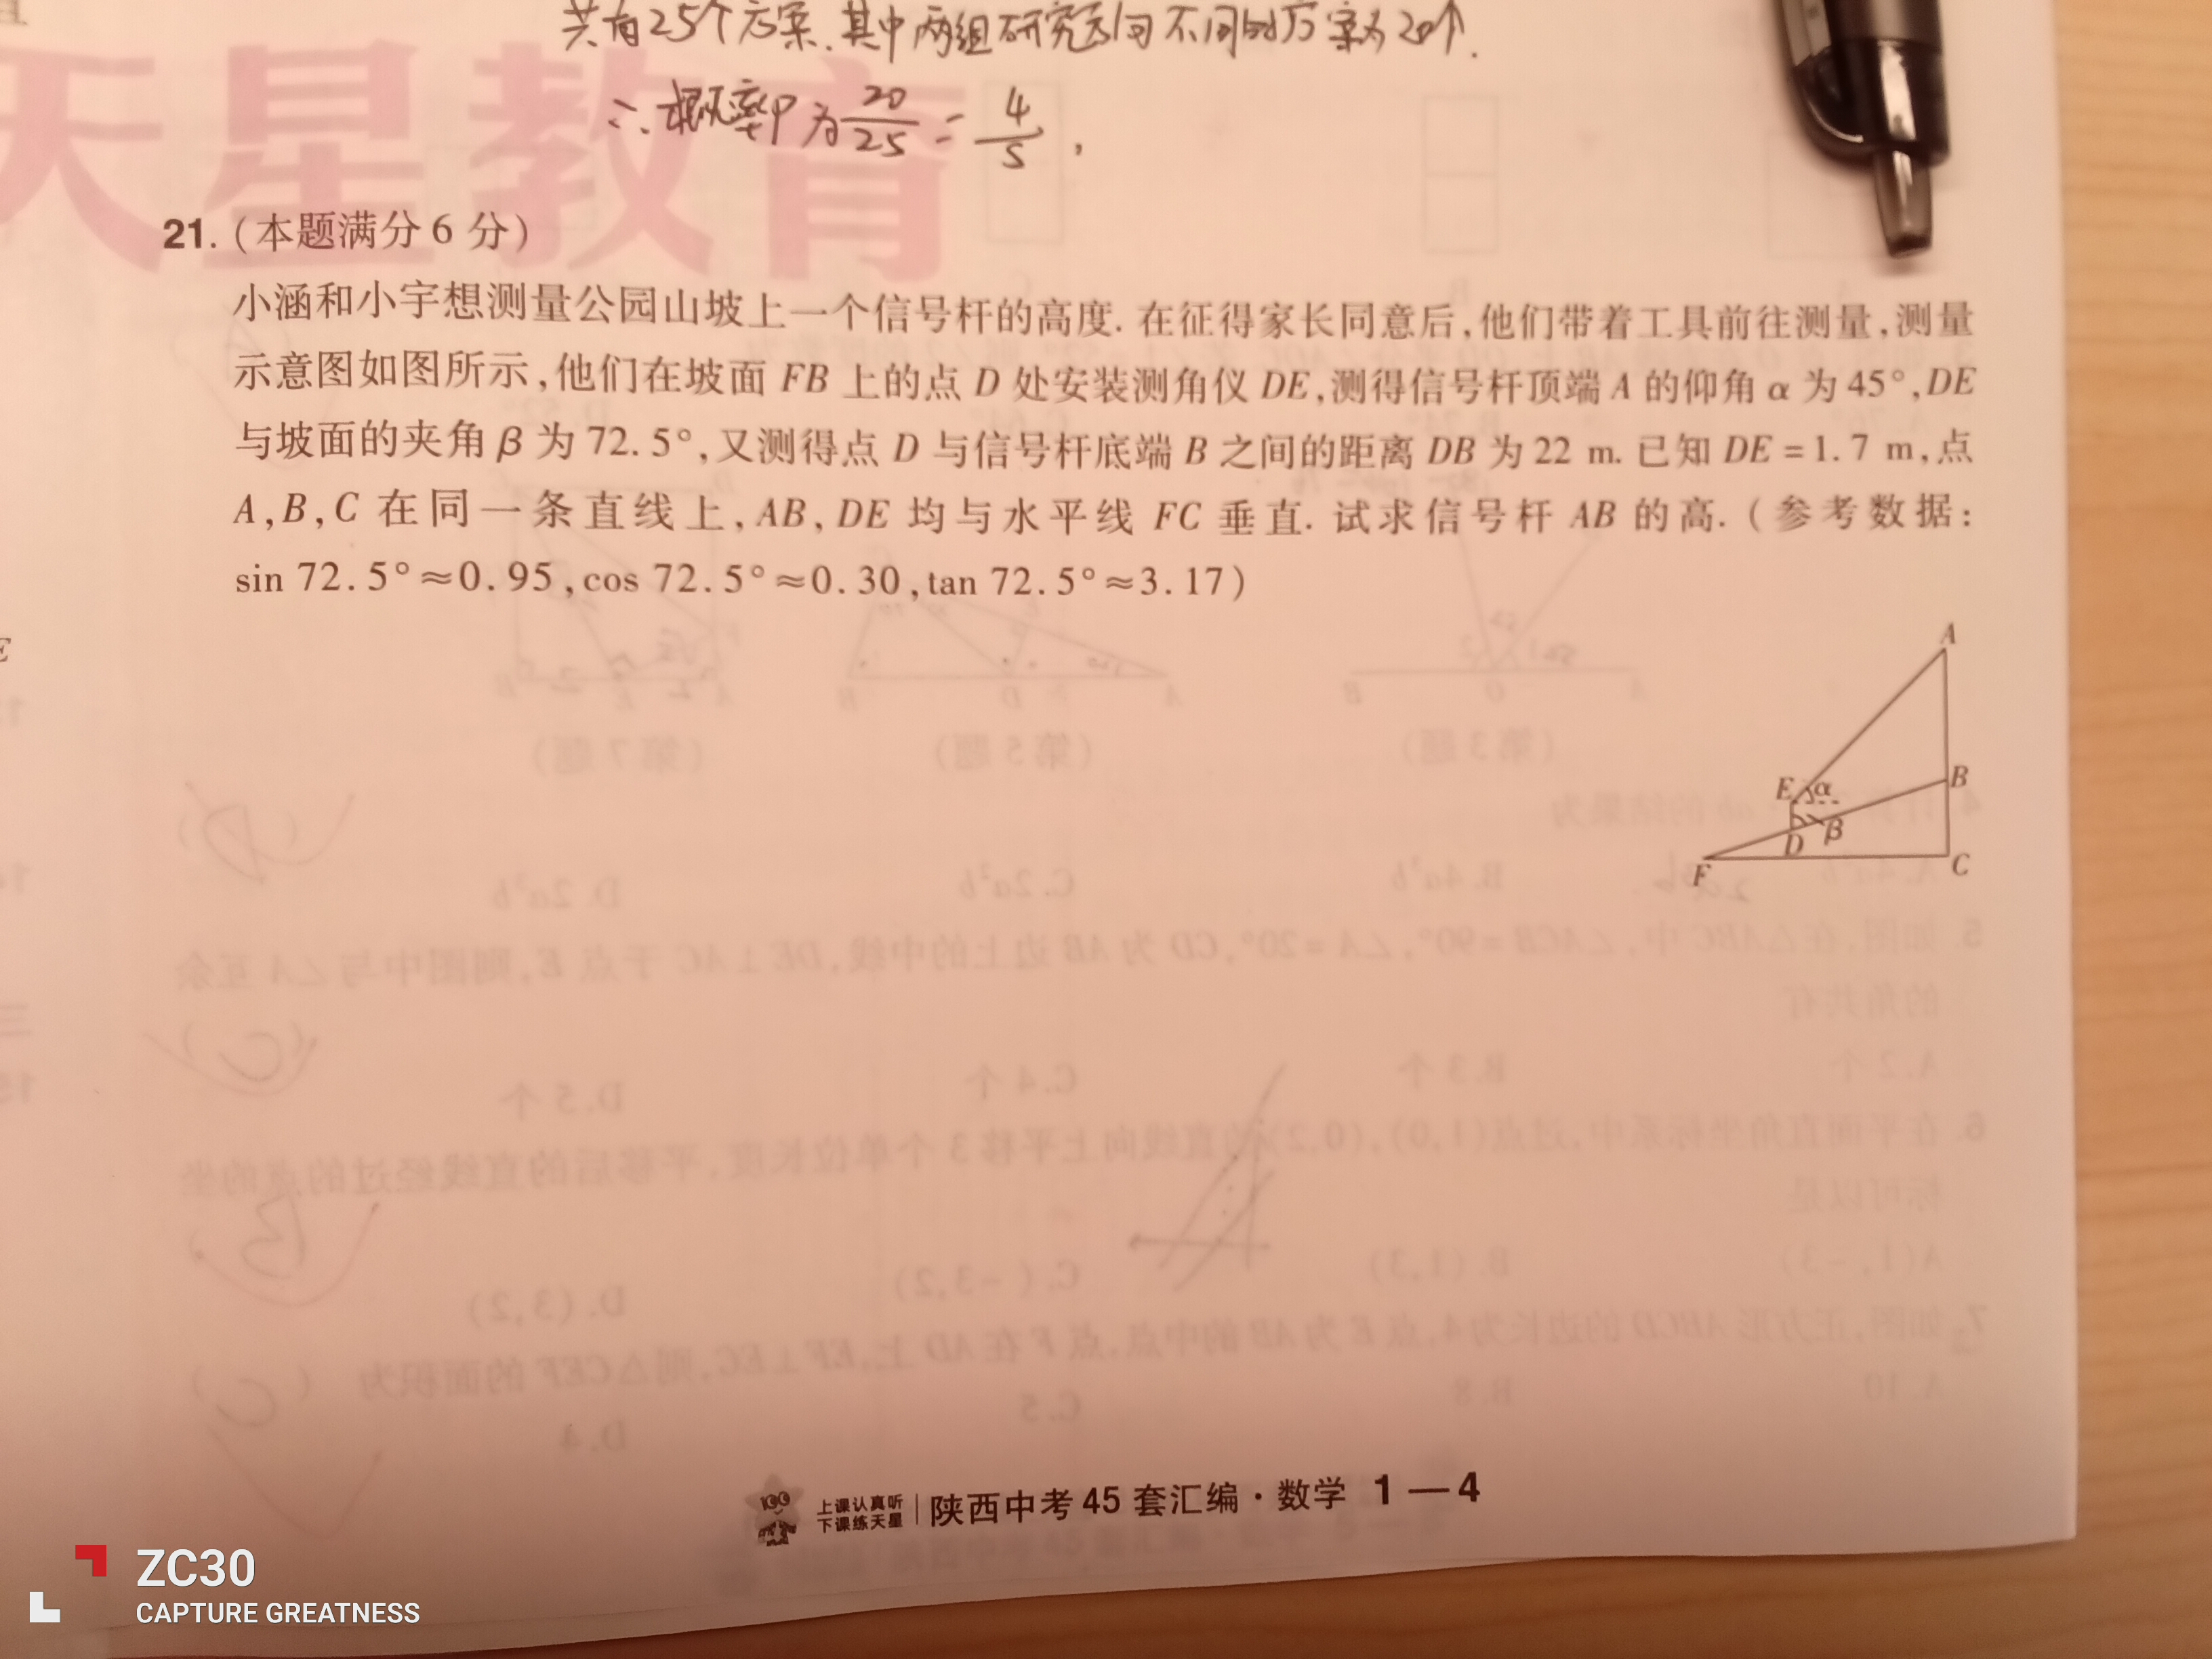 共有25个方案.其中两组研究方向不同的方案为20个.
∴概率P为20/25=4/5.
天星教育
21.(本题满分6分)
小涵和小宇想测量公园山坡上一个信号杆的高度.在征得家长同意后,他们带着工具前往测量,测量
示意图如图所示,他们在坡面FB上的点D处安装测角仪DE,测得信号杆顶端A的仰角α为45°,DE
与坡面的夹角β为72.5°,又测得点D与信号杆底端B之间的距离DB为22 m.已知DE=1.7 m,点
A,B,C在同一条直线上,AB,DE均与水平线FC垂直.试求信号杆AB的高.(参考数据:
sin 72.5°≈0.95,cos 72.5°≈0.30,tan 72.5°≈3.17)
A
E α B
D β
F C
上课认真听
下课练天星
陕西中考45套汇编·数学 1—4
ZC30
CAPTURE GREATNESS